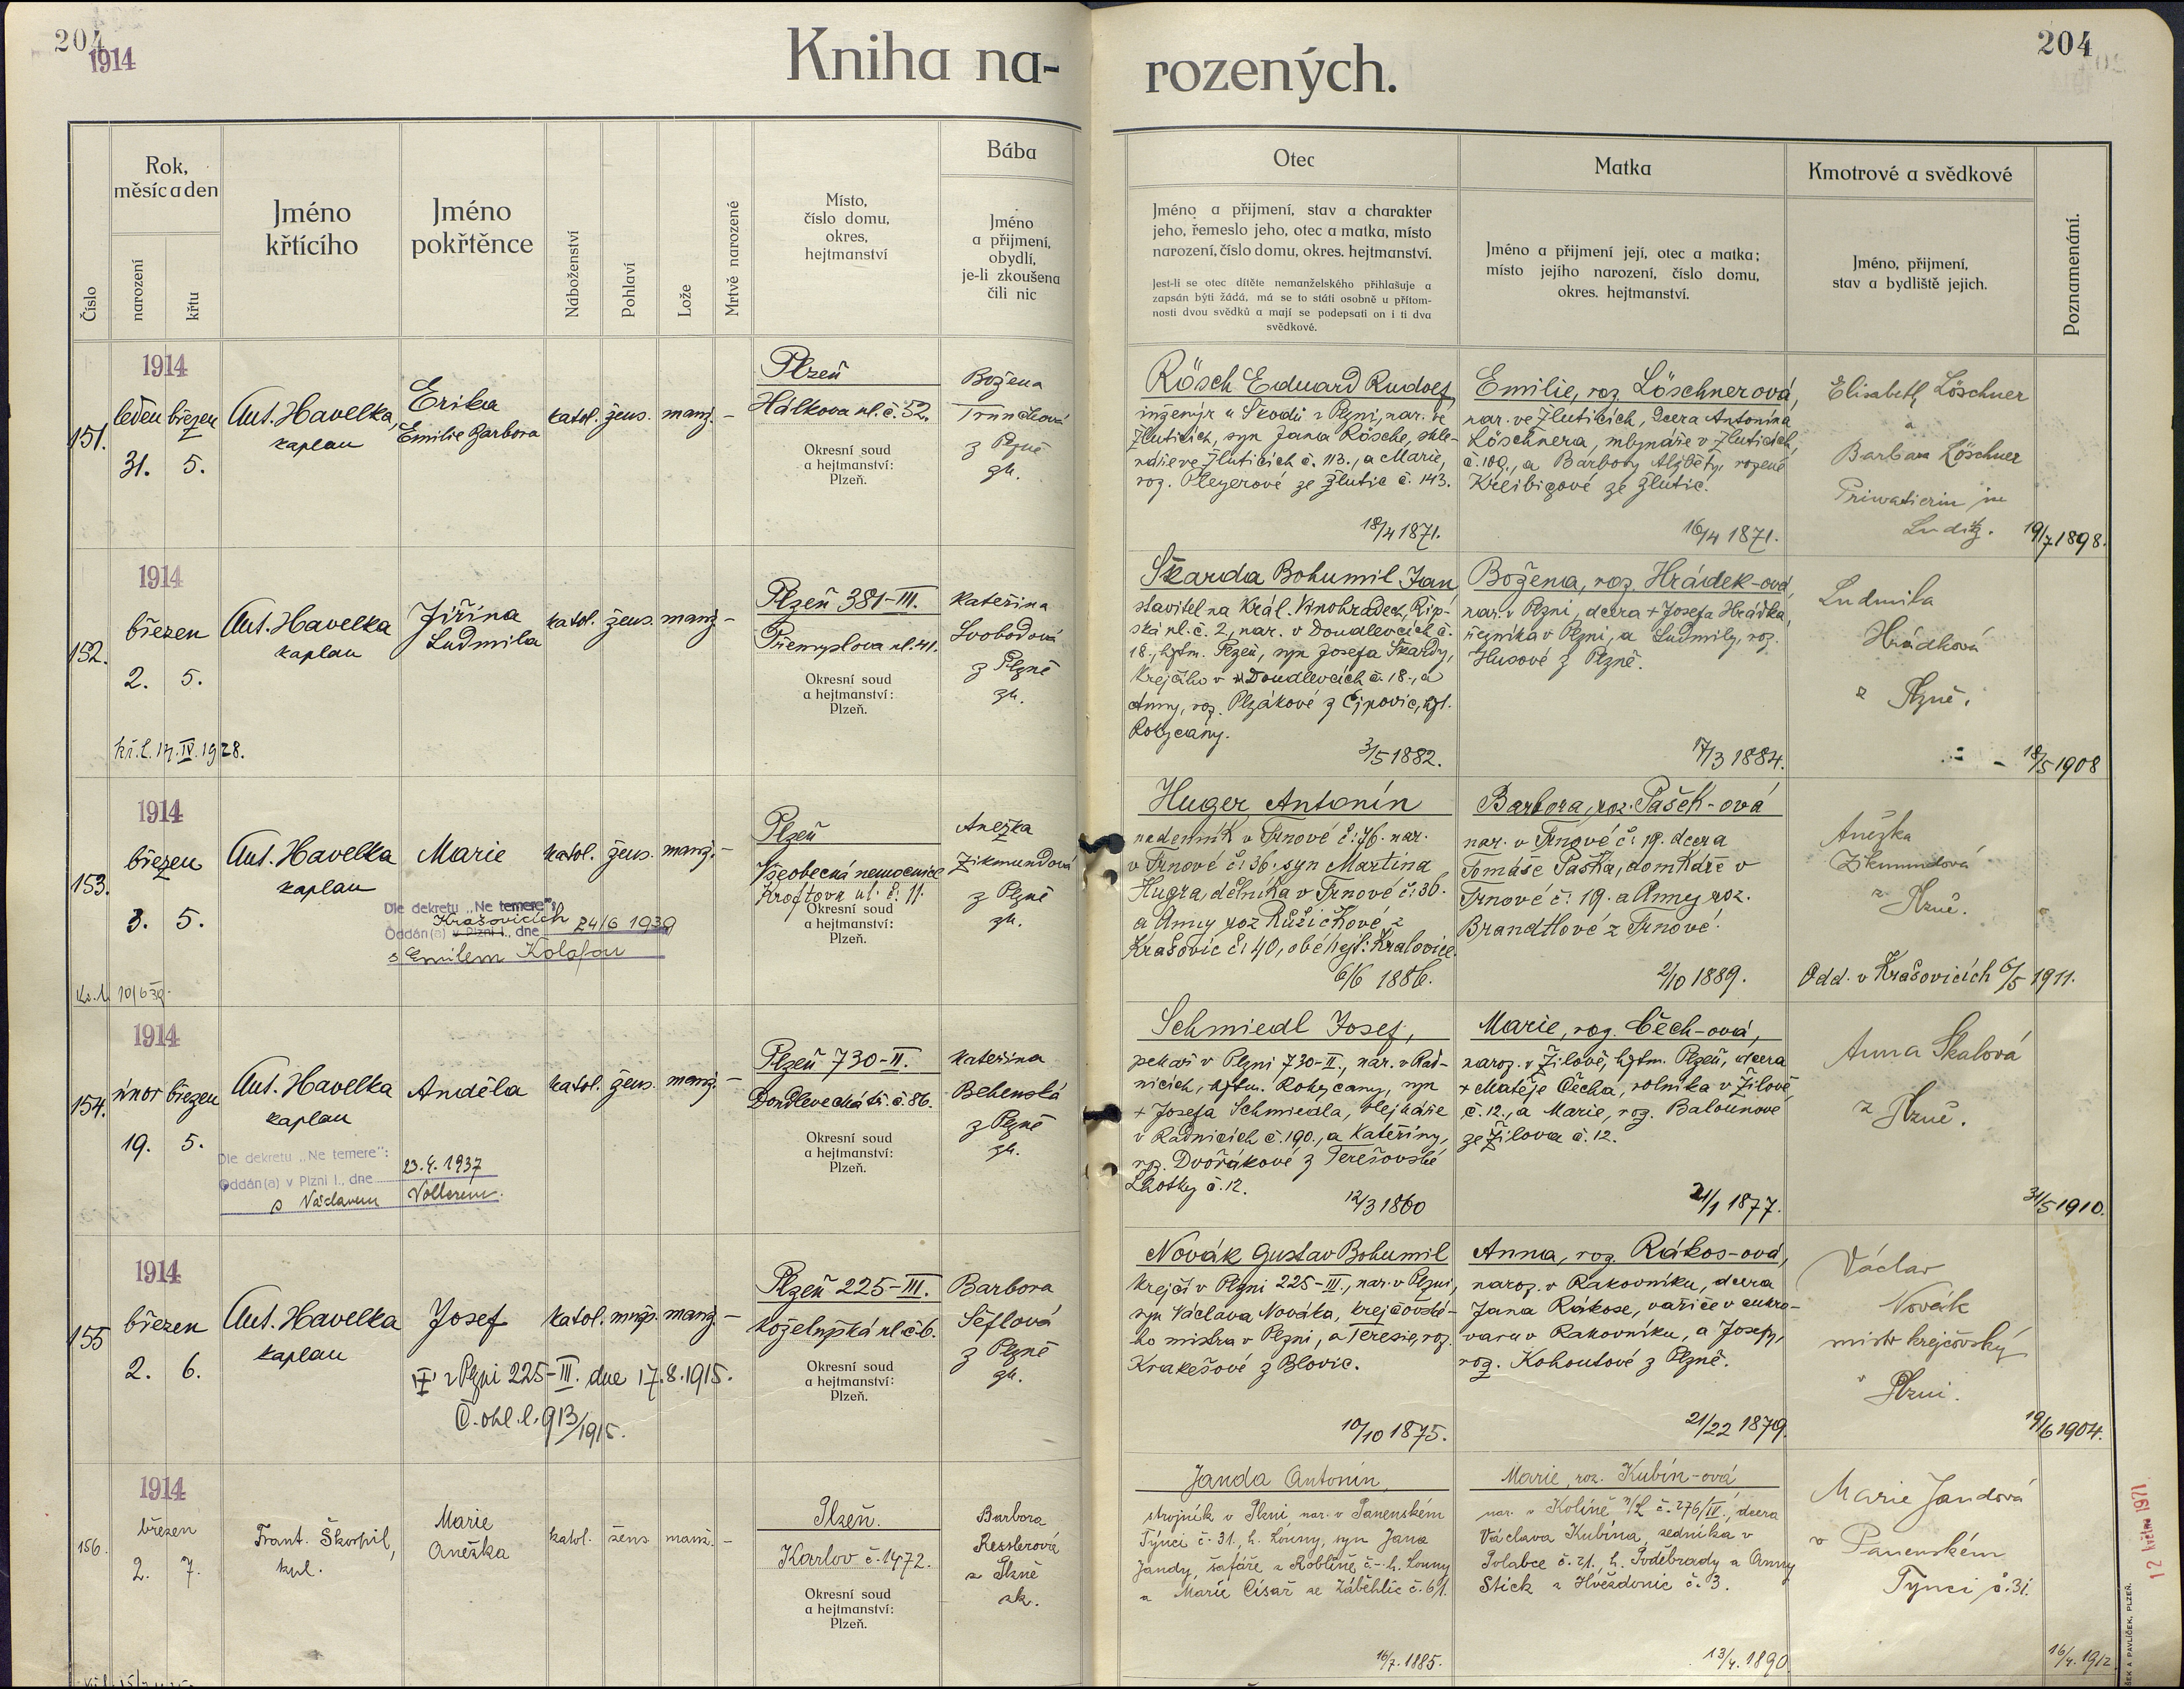 204
1914
Kniha na-
rozených.
204
Číslo
Rok,
měsíc a den
narození
křtu
Jméno
křtícího
Jméno
pokřtěnce
Náboženství
Pohlaví
Lože
Mrtvě narozené
Místo,
číslo domu,
okres,
hejtmanství
Bába
Jméno
a přijmení,
obydlí,
je-li zkoušena
čili nic
Otec
Jméno a přijmení, stav a charakter
jeho, řemeslo jeho, otec a matka, místo
narození, číslo domu, okres. hejtmanství.
Jest-li se otec dítěte nemanželského přihlašuje a
zapsán býti žádá, má se to státi osobně u přítom-
nosti dvou svědků a mají se podepsati on i ti dva
svědkové.
Matka
Jméno a přijmení její, otec a matka;
místo jejího narození, číslo domu,
okres. hejtmanství.
Kmotrové a svědkové
Jméno, přijmení,
stav a bydliště jejich.
Poznamenání.
151.
1914
leden březen
31. 5.
Ant. Havelka,
kaplan
Erika
Emilie Barbora
katol. žens. manž. –
Plzeň
Hálkova ul. č. 52.
Okresní soud
a hejtmanství:
Plzeň.
Božena
z Plzně
zk.
Rösch Eduard Rudolf,
inženýr u Škodů v Plzni, nar. ve
Žluticích, syn Jana Rösche, skle-
náře ve Žluticích č. 113., a Marie,
roz. Pleyerové ze Žlutic č. 143.
18/4 1871.
Emilie, roz. Löschnerová,
nar. ve Žluticích, dcera Antonína
Löschnera, mlynáře v Žluticích
č. 109., a Barbory Alžběty, rozené
Kreibigové ze Žlutic.
16/4 1871.
Elisabeth Löschner
a
Barbara Löschner
Privatierin in
Luditz.
19/7 1898.
152.
1914
březen
2. 5.
kř. l. 17. IV. 1928.
Ant. Havelka
kaplan
Jiřina
Ludmila
katol. žens. manž. –
Plzeň 381-III.
Přemyslova ul. 41.
Okresní soud
a hejtmanství:
Plzeň.
Kateřina
Svobodová
z Plzně
zk.
Škarda Bohumil Jan
stavitel na Král. Vinohradech, Říp-
ská ul. č. 2, nar. v Doudlevcích č.
18., hjtm. Plzeň, syn Josefa Škardy,
krejčího v Doudlevcích č. 18., a
Anny, roz. Plzákové z Ejpovic, hjt.
Rokycany.
3/5 1882.
Božena, roz. Hrádek-ová,
nar. v Plzni, dcera + Josefa Hrádka,
řezníka v Plzni, a Ludmily, roz.
Husové z Plzně.
17/3 1884.
Ludmila
Hrádková
z Plzně.
18/5 1908
153.
1914
březen
3. 5.
Kř. l. 10/6 39.
Ant. Havelka
kaplan
Marie
katol. žens. manž. –
Dle dekretu „Ne temere":
Krašovicích
Oddán(a) v Plzni I., dne 24/6 1939
s Emilem Kolafou
Plzeň
Všeobecná nemocnice
Kroftova ul. č. 11.
Okresní soud
a hejtmanství:
Plzeň.
Anežka
Zikmundová
z Plzně
zk.
Huger Antonín
nádenník v Trnové č. 76. nar.
v Trnové č. 36. syn Martina
Hugra, dělníka v Trnové č. 36.
a Anny roz Růžičkové z
Krašovic č. 40, obé hejt: Kralovice.
6/6 1886.
Barbora, roz. Pašek-ová
nar. v Trnové č. 19. dcera
Tomáše Paška, domkáře v
Trnové č. 19. a Anny roz.
Brandtlové z Trnové.
2/10 1889.
Anežka
Zikmundová
z Plzně.
Odd. v Krašovicích 6/5 1911.
154.
1914
únor březen
19. 5.
Ant. Havelka
kaplan
Anděla
katol. žens. manž. –
Dle dekretu „Ne temere":
Oddán(a) v Plzni I., dne 23.4.1937
s Václavem Vollerem.
Plzeň 730-II.
Doudlevecká tř. č. 86.
Okresní soud
a hejtmanství:
Plzeň.
Kateřina
Behenská
z Plzně
zk.
Schmiedl Josef,
pekař v Plzni 730-II., nar. v Rad-
nicích, hjtm. Rokycany, syn
+ Josefa Schmiedla, olejkáře
v Radnicích č. 190., a Kateřiny,
roz. Dvořákové z Terešovské
Lhotky č. 12.
12/3 1860
Marie, roz. Čech-ová,
naroz. v Žilově, hjtm. Plzeň, dcera
+ Matěje Čecha, rolníka v Žilově
č. 12., a Marie, roz. Balounové
ze Žilova č. 12.
21/1 1877.
Anna Skalová
z Plzně.
31/5 1910.
155
1914
březen
2. 6.
Ant. Havelka
kaplan
Josef
katol. mužs. manž. –
† v Plzni 225-III. dne 17.8.1915.
Č. ohl. l. 913/1915.
Plzeň 225-III.
Koželužská ul č. 6.
Okresní soud
a hejtmanství:
Plzeň.
Barbora
Šeflová
z Plzně
zk.
Novák Gustav Bohumil
krejčí v Plzni 225-III., nar. v Plzni,
syn Václava Nováka, krejčovské-
ho mistra v Plzni, a Teresie, roz.
Krakešové z Blovic.
10/10 1875.
Anna, roz. Rákos-ová,
naroz. v Rakovníku, dcera
Jana Rákose, vařiče v cukro-
varu v Rakovníku, a Josefy,
roz. Kohoutové z Plzně.
21/22 1879.
Václav
Novák
mistr krejčovský
v Plzni.
19/6 1904.
156.
1914
březen
2. 7.
Frant. Škorpil,
kpl.
Marie
Anežka
katol. žens. manž. –
Plzeň.
Karlov č. 1472.
Okresní soud
a hejtmanství:
Plzeň.
Barbora
Resslerová
z Plzně
zk.
Janda Antonín,
strojník v Plzni nar. v Panenském
Týnci č. 31., h. Louny, syn Jana
Jandy, šafáře z Koblíně č. – h. Louny
a Marie Císař ze Záběhlic č. 61.
16/7. 1885.
Marie, roz. Kubín-ová
nar. v Kolíně n/L č. 276/IV., dcera
Václava Kubína, zedníka v
Polabce č. 21., h. Poděbrady a Anny
Stick z Hvězdonic č. 3.
13/4. 1890.
Marie Jandová
v Panenském
Týnci č. 31.
16/4. 1912.
12 květn 1971
ŠEK A PAVLÍČEK, PLZEŇ.